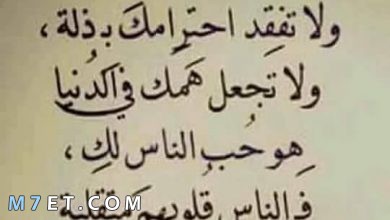 ولا تفقد احترامك بذلة ،
ولا تجعل همك في الدُنيا
هو حُب الناس لك ،
فـ الناس قلوبهم متقلبة
M7ET.COM